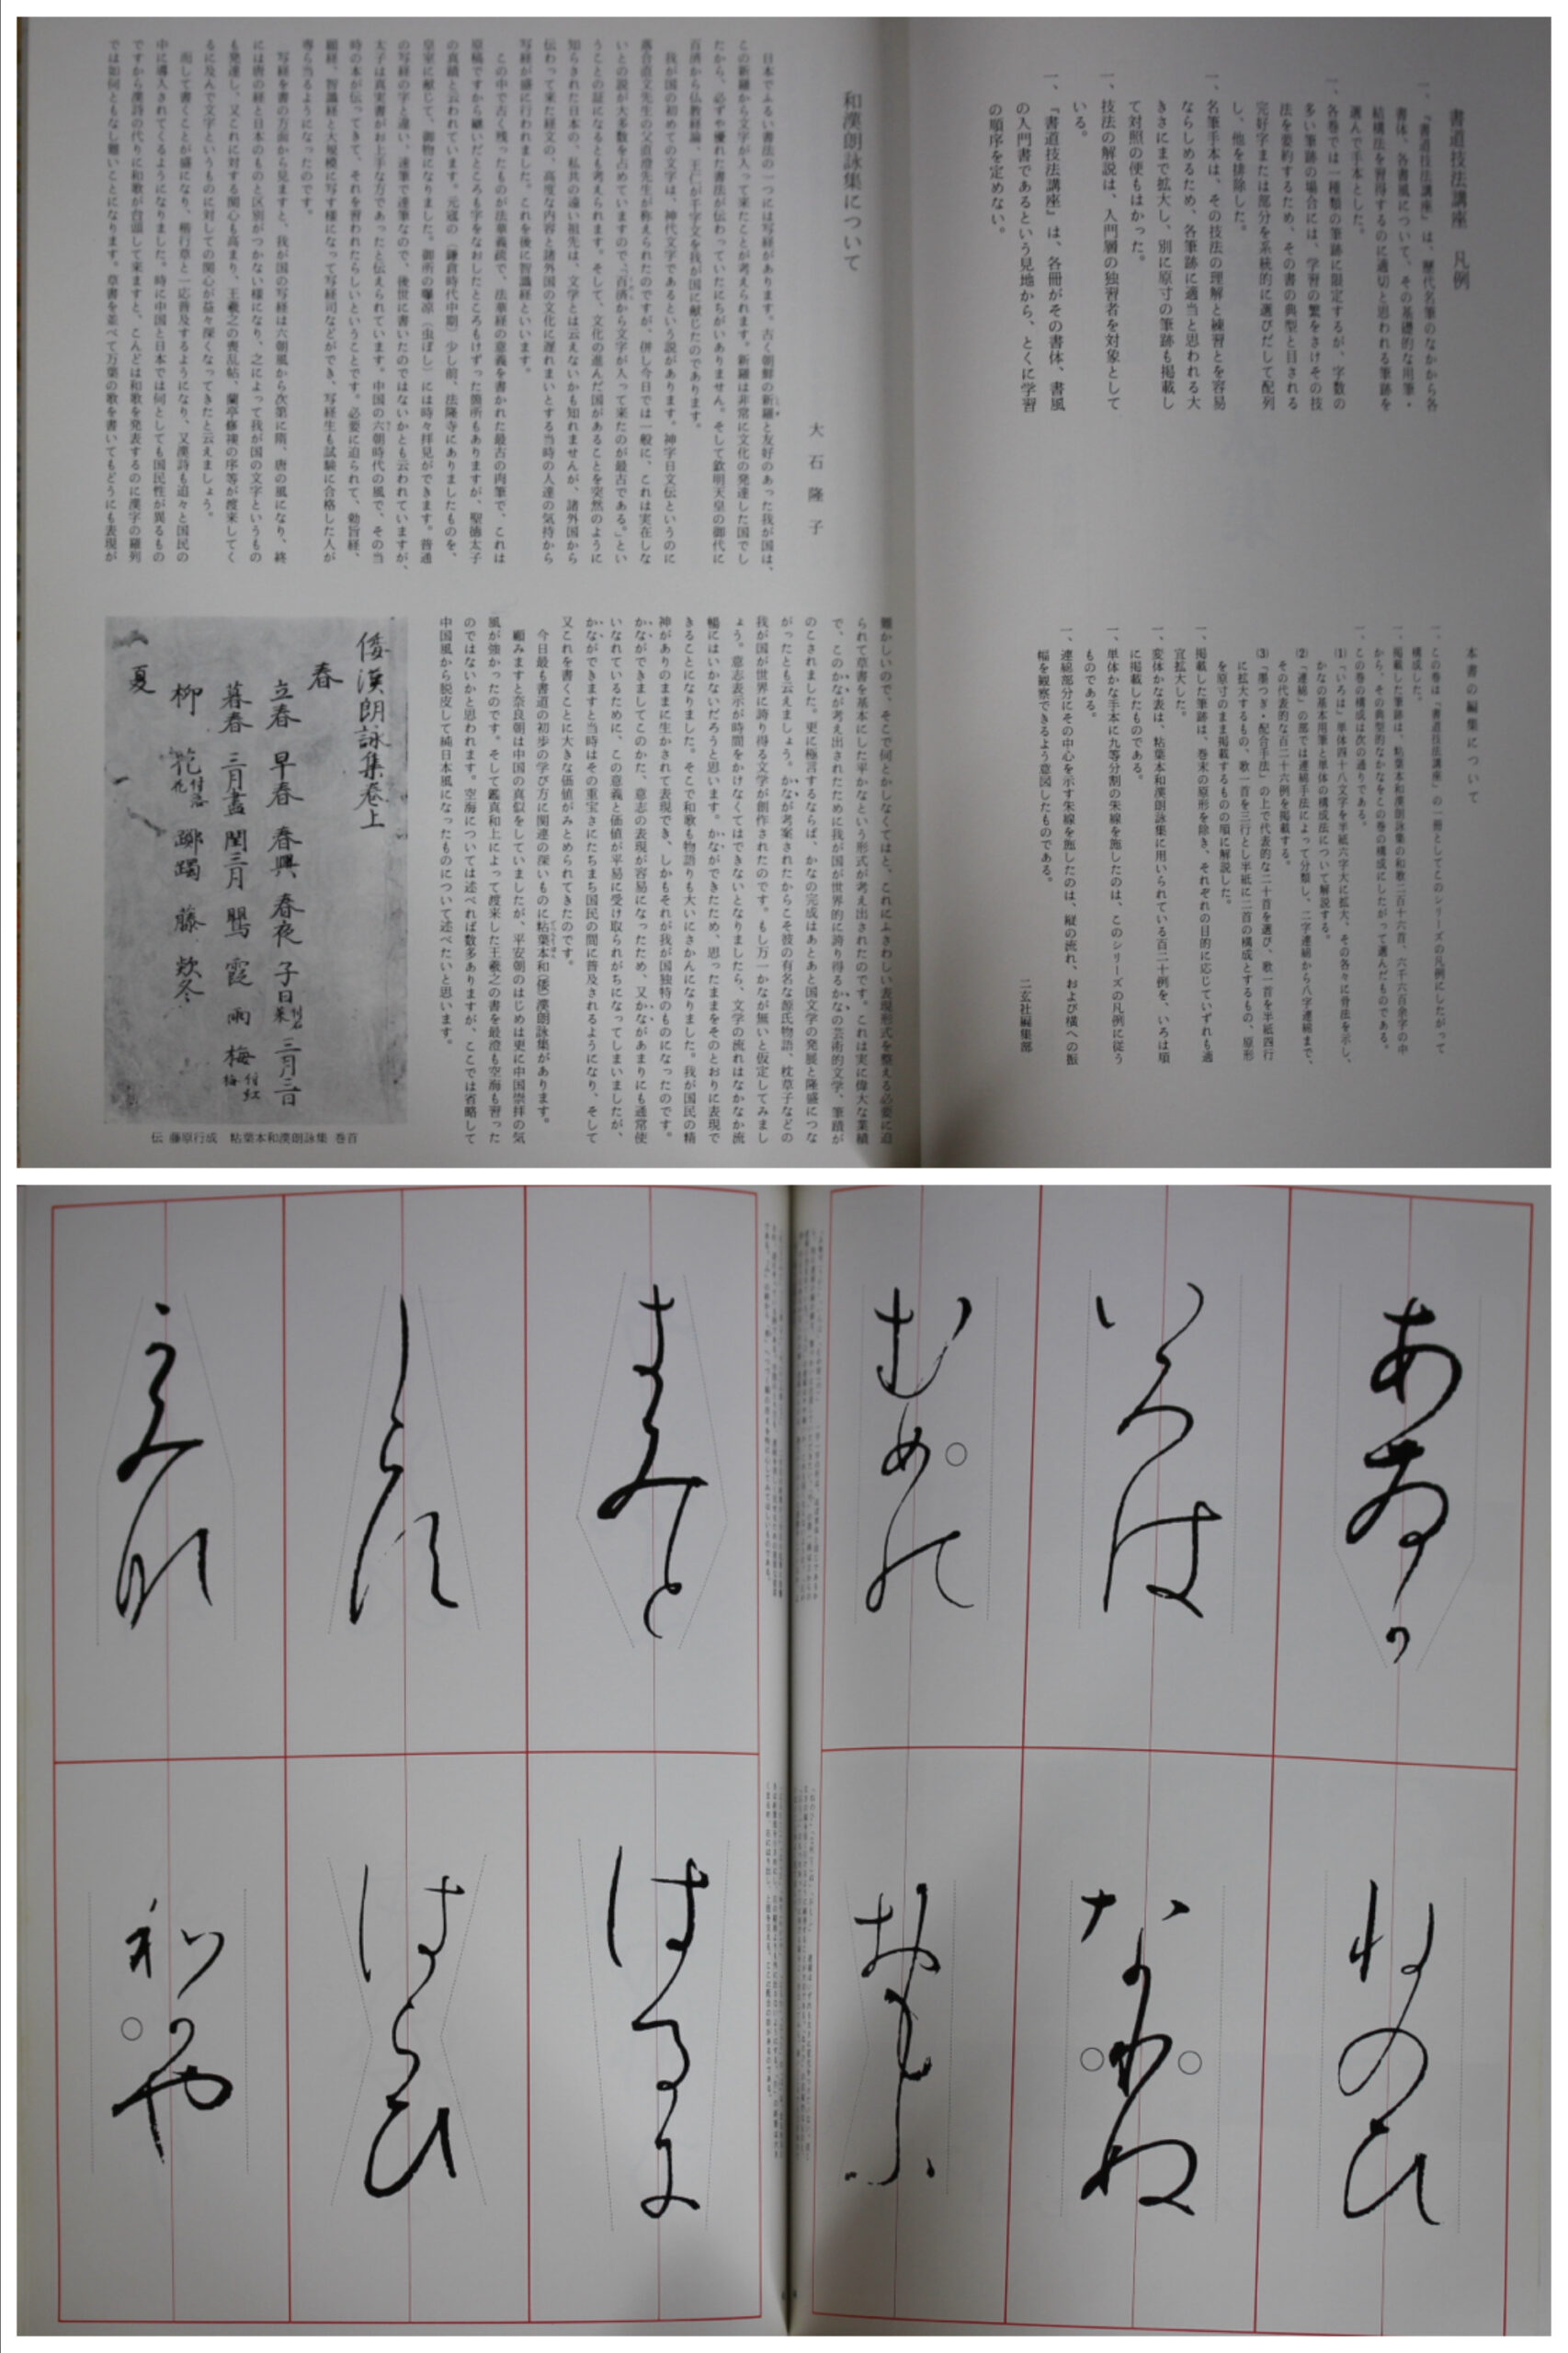 書道技法講座 凡例
一、『書道技法講座』は、歴代名筆のなかから各
書体、各書風について、その基礎的な用筆・
結構法を習得するのに適切と思われる筆跡を
選んで手本とした。
一、各巻では一種類の筆跡に限定するが、字数の
多い筆跡の場合には、学習の繁をさけその技
法を要約するため、その書の典型と目される
完好字または部分を系統的に選びだして配列
し、他を排除した。
一、名筆手本は、その技法の理解と練習とを容易
ならしめるため、各筆跡に適当と思われる大
きさにまで拡大し、別に原寸の筆跡も掲載し
て対照の便もはかった。
一、技法の解説は、入門層の独習者を対象として
いる。
一、『書道技法講座』は、各冊がその書体、書風
の入門書であるという見地から、とくに学習
の順序を定めない。
本書の編集について
一、この巻は『書道技法講座』の一冊としてこのシリーズの凡例にしたがって
構成した。
一、掲載した筆跡は、粘葉本和漢朗詠集の和歌二百十六首、六千六百余字の中
から、その典型的なかなをこの巻の構成にしたがって選んだものである。
一、この巻の構成は次の通りである。
(1)「いろは」単体四十八文字を半紙六字大に拡大、その各々に骨法を示し、
かなの基本用筆と単体の構成法について解説する。
(2)「連綿」の部では連綿手法によって分類し、二字連綿から八字連綿まで、
その代表的な百二十六例を掲載する。
(3)「墨つぎ・配合手法」の上で代表的な二十首を選び、歌一首を半紙四行
に拡大するもの、歌一首を三行とし半紙に二首の構成とするもの、原形
を原寸のまま掲載するものの順に解説した。
一、掲載した筆跡は、巻末の原形を除き、それぞれの目的に応じていずれも適
宜拡大した。
一、変体かな表は、粘葉本和漢朗詠集に用いられている百二十例を、いろは順
に掲載したものである。
一、単体かな手本に九等分割の朱線を施したのは、このシリーズの凡例に従う
ものである。
一、連綿部分にその中心を示す朱線を施したのは、縦の流れ、および横への振
幅を観察できるよう意図したものである。
二玄社編集部
和漢朗詠集について
大石隆子
日本でふるい書法の一つには写経があります。古く朝鮮の新羅と友好のあった我が国は、
この新羅から文字が入って来たことが考えられます。新羅は非常に文化の発達した国でし
たから、必ずや優れた書法が伝わっていたにちがいありません。そして欽明天皇の御代に
百済から仏教経論、王仁が千字文を我が国に献じたのであります。
我が国の初めての文字は、神代文字であるという説があります。神字日文伝というのに
落合直文先生の父直澄先生が称えられたのですが、併し今日では一般に、これは実在しな
いとの説が大多数を占めていますので、「百済から文字が入って来たのが最古である。」とい
うことの証になるとも考えられます。そして、文化の進んだ国があることを突然のように
知らされた日本の、私共の遠い祖先は、文学とは云えないかも知れませんが、諸外国から
伝わって来た経文の、高度な内容と諸外国の文化に遅れまいとする当時の人達の気持から
写経が盛に行われました。これを後に智識経といいます。
この中で古く残ったものが法華義疏で、法華経の意義を書かれた最古の肉筆で、これは
原稿ですから継いだところも字をなおしたところもけずった箇所もありますが、聖徳太子
の真蹟と云われています。元蔵の(鎌倉時代中期)少し前、法隆寺にありましたものを、
皇室に献じて、御物になりました。御所の曝凉(虫ぼし)には時々拝見ができます。普通
の写経の字と違い、速筆で達筆なので、後世に書いたのではないかとも云われていますが、
太子は真実書がお上手な方であったと伝えられています。中国の六朝時代の風で、その当
時の本が伝ってきて、それを習われたらしいということです。必要に迫られて、勅旨経、
願経、智識経と大規模に写す様になって写経司などができ、写経生も試験に合格した人が
専ら当るようになったのです。
写経を書の方面から見ますと、我が国の写経は六朝風から次第に隋、唐の風になり、終
には唐の経と日本のものと区別がつかない様になり、之によって我が国の文字というもの
も発達し、又これに対する関心も高まり、王羲之の喪乱帖、蘭亭修禊の序等が渡来してく
るに及んで文字というものに対しての関心が益々深くなってきたと云えましょう。
而して書くことが盛になり、楷行草と一応普及するようになり、又漢詩も追々と国民の
中に導入されてくるようになりました。時に中国と日本では何としても国民性が異るもの
ですから漢詩の代りに和歌が台頭して来ますと、こんどは和歌を発表するのに漢字の羅列
では如何ともなし難いことになります。草書を並べて万葉の歌を書いてもどうにも表現が
難かしいので、そこで何とかしなくてはと、これにふさわしい表現形式を整える必要に迫
られて草書を基本にした平かなという形式が考え出されたのです。これは実に偉大な業績
で、このかなが考え出されたために我が国が世界的に誇り得るかなの芸術的文学、筆蹟が
のこされました。更に極言するならば、かなの完成はあとあと国文学の発展と隆盛につな
がったとも云えましょう。かなが考案されたからこそ彼の有名な源氏物語、枕草子などの
我が国が世界に誇り得る文学が創作されたのです。もし万一かなが無いと仮定してみまし
ょう。意志表示が時間をかけなくてはできないとなりましたら、文学の流れはなかなか流
暢にはいかないだろうと思います。かなができたため、思ったままをそのとおりに表現で
きることになりました。そこで和歌も物語りも大いにさかんになりました。我が国民の精
神がありのままに生かされて表現でき、しかもそれが我が国独特のものになったのです。
かなができましてこのかた、意志の表現が容易になったため、又かながあまりにも通常使
いなれているために、この意義と価値が平易に受け取られがちになってしまいましたが、
かなができますと当時はその重宝さにたちまち国民の間に普及されるようになり、そして
又これを書くことに大きな価値がみとめられてきたのです。
今日最も書道の初歩の学び方に関連の深いものに粘葉本和(倭)漢朗詠集があります。
顧みますと奈良朝は中国の真似をしていましたが、平安朝のはじめは更に中国崇拝の気
風が強かったのです。そして鑑真和上によって渡来した王羲之の書を最澄も空海も習った
のではないかと思われます。空海については述べれば数多ありますが、ここでは省略して
中国風から脱皮して純日本風になったものについて述べたいと思います。
倭漢朗詠集巻上
春
立春 早春 春興 春夜 子日付若菜 三月三日
暮春 三月盡 閏三月 鸎 霞 雨 梅付紅梅
柳 花付落花 躑躅 藤 欵冬
夏
伝 藤原行成 粘葉本和漢朗詠集 巻首
あるか
いろは
むめの
ねのひ
なかね
おもふ
まみと
はるに
はらひ